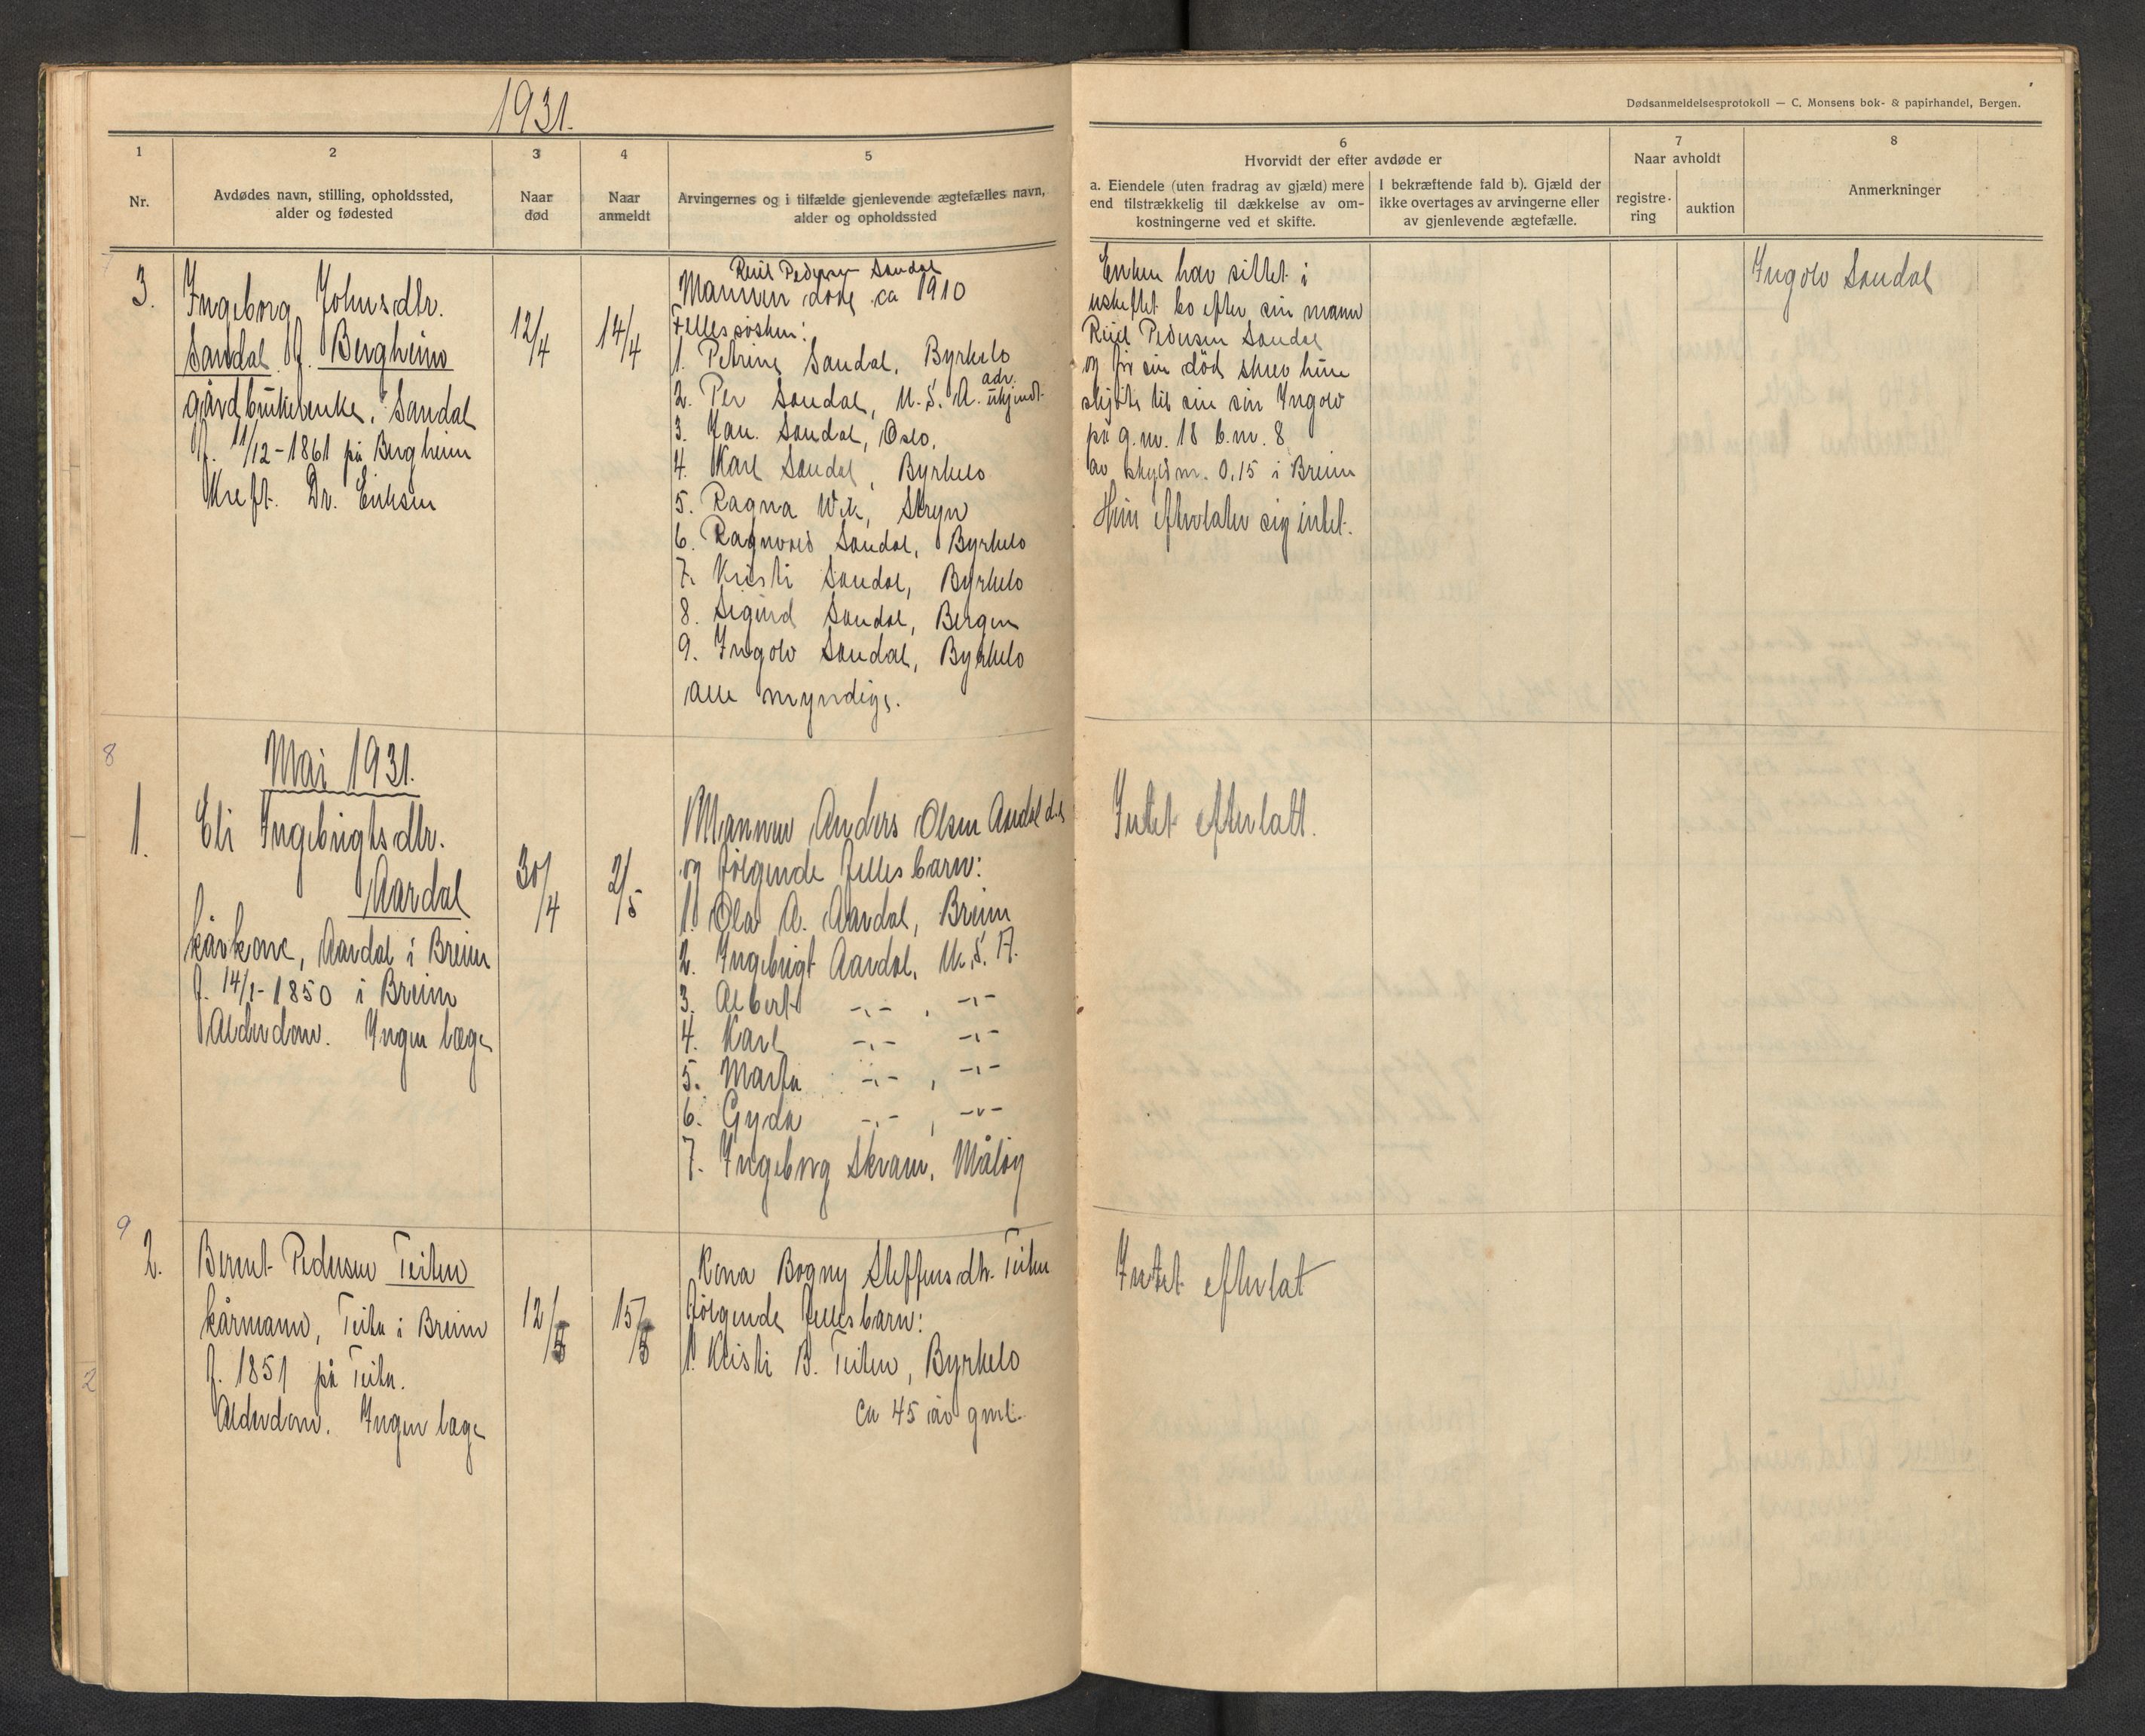 1931.
Dødsanmeldelsesprotokoll — C. Monsens bok- & papirhandel, Bergen.
1
Nr.
2
Avdødes navn, stilling, opholdssted,
alder og fødested
3
Naar
død
4
Naar
anmeldt
5
Arvingernes og i tilfælde gjenlevende ægtefælles navn,
alder og opholdssted
6
Hvorvidt der efter avdøde er
a. Eiendele (uten fradrag av gjæld) mere
end tilstrækkelig til dækkelse av om-
kostningerne ved et skifte.
I bekræftende fald b). Gjæld der
ikke overtages av arvingerne eller
av gjenlevende ægtefælle.
7
Naar avholdt
registre-
ring
auktion
8
Anmerkninger
3.
Ingeborg Johnsdtr.
Sandal f. Bergheim
gårdbrukerenke, Sandal
f. 11/12-1861 på Bergheim
Kreft. Dr. Eriksen
12/4
14/4
Pedersen Sandal
Mannen døde ca 1910
Fellessøsken:
1. Petrine Sandal, Byrkelo
2. Per Sandal, U.S.A. adr. ukjendt
3. Jan. Sandal, Oslo,
4. Karl Sandal, Byrkelo
5. Ragna Wik, Stryn
6. Ragnvald Sandal, Byrkelo
7. Kristi Sandal, Byrkelo
8. Sigurd Sandal, Bergen
9. Ingolv Sandal, Byrkelo
alle myndige.
Enken har sittet i
uskiftet bo efter sin mann
Pedersen Sandal
og før sin død skrev hun
skjøte til sin søn Ingolv
på g.nr. 18 b.nr. 8
av skyldm. 0,15 i Breim
Hun efterlater sig intet.
Ingolv Sandal
8
Mai 1931.
1.
Eli Ingebrigtsdtr.
Aardal
kårkone, Aardal i Breim
f. 14/1-1850 i Breim
Alderdom. Ingen læge
30/4
2/5
Mannen Anders Olsen Aardal
og følgende fellesbarn:
1. Ola A. Aardal, Breim
2. Ingebrigt Aardal, U.S.A.
3. Albert -"- , -"-
4. Karl -"- -"-
5. Marta -"- , -"-
6. Gyda -"- , -"-
7. Ingeborg Skram, Måløy
Intet efterlatt.
9
2.
Bernt Pedersen Teiten
kårmann, Teiten i Breim
f. 1851 på Teiten.
Alderdom. Ingen læge
12/5
15/5
Kona Bogny Steffensdtr. Teiten
følgende fellesbarn:
1. Kristi B. Teiten, Byrkelo
ca 45 år gml.
Intet efterlat
2